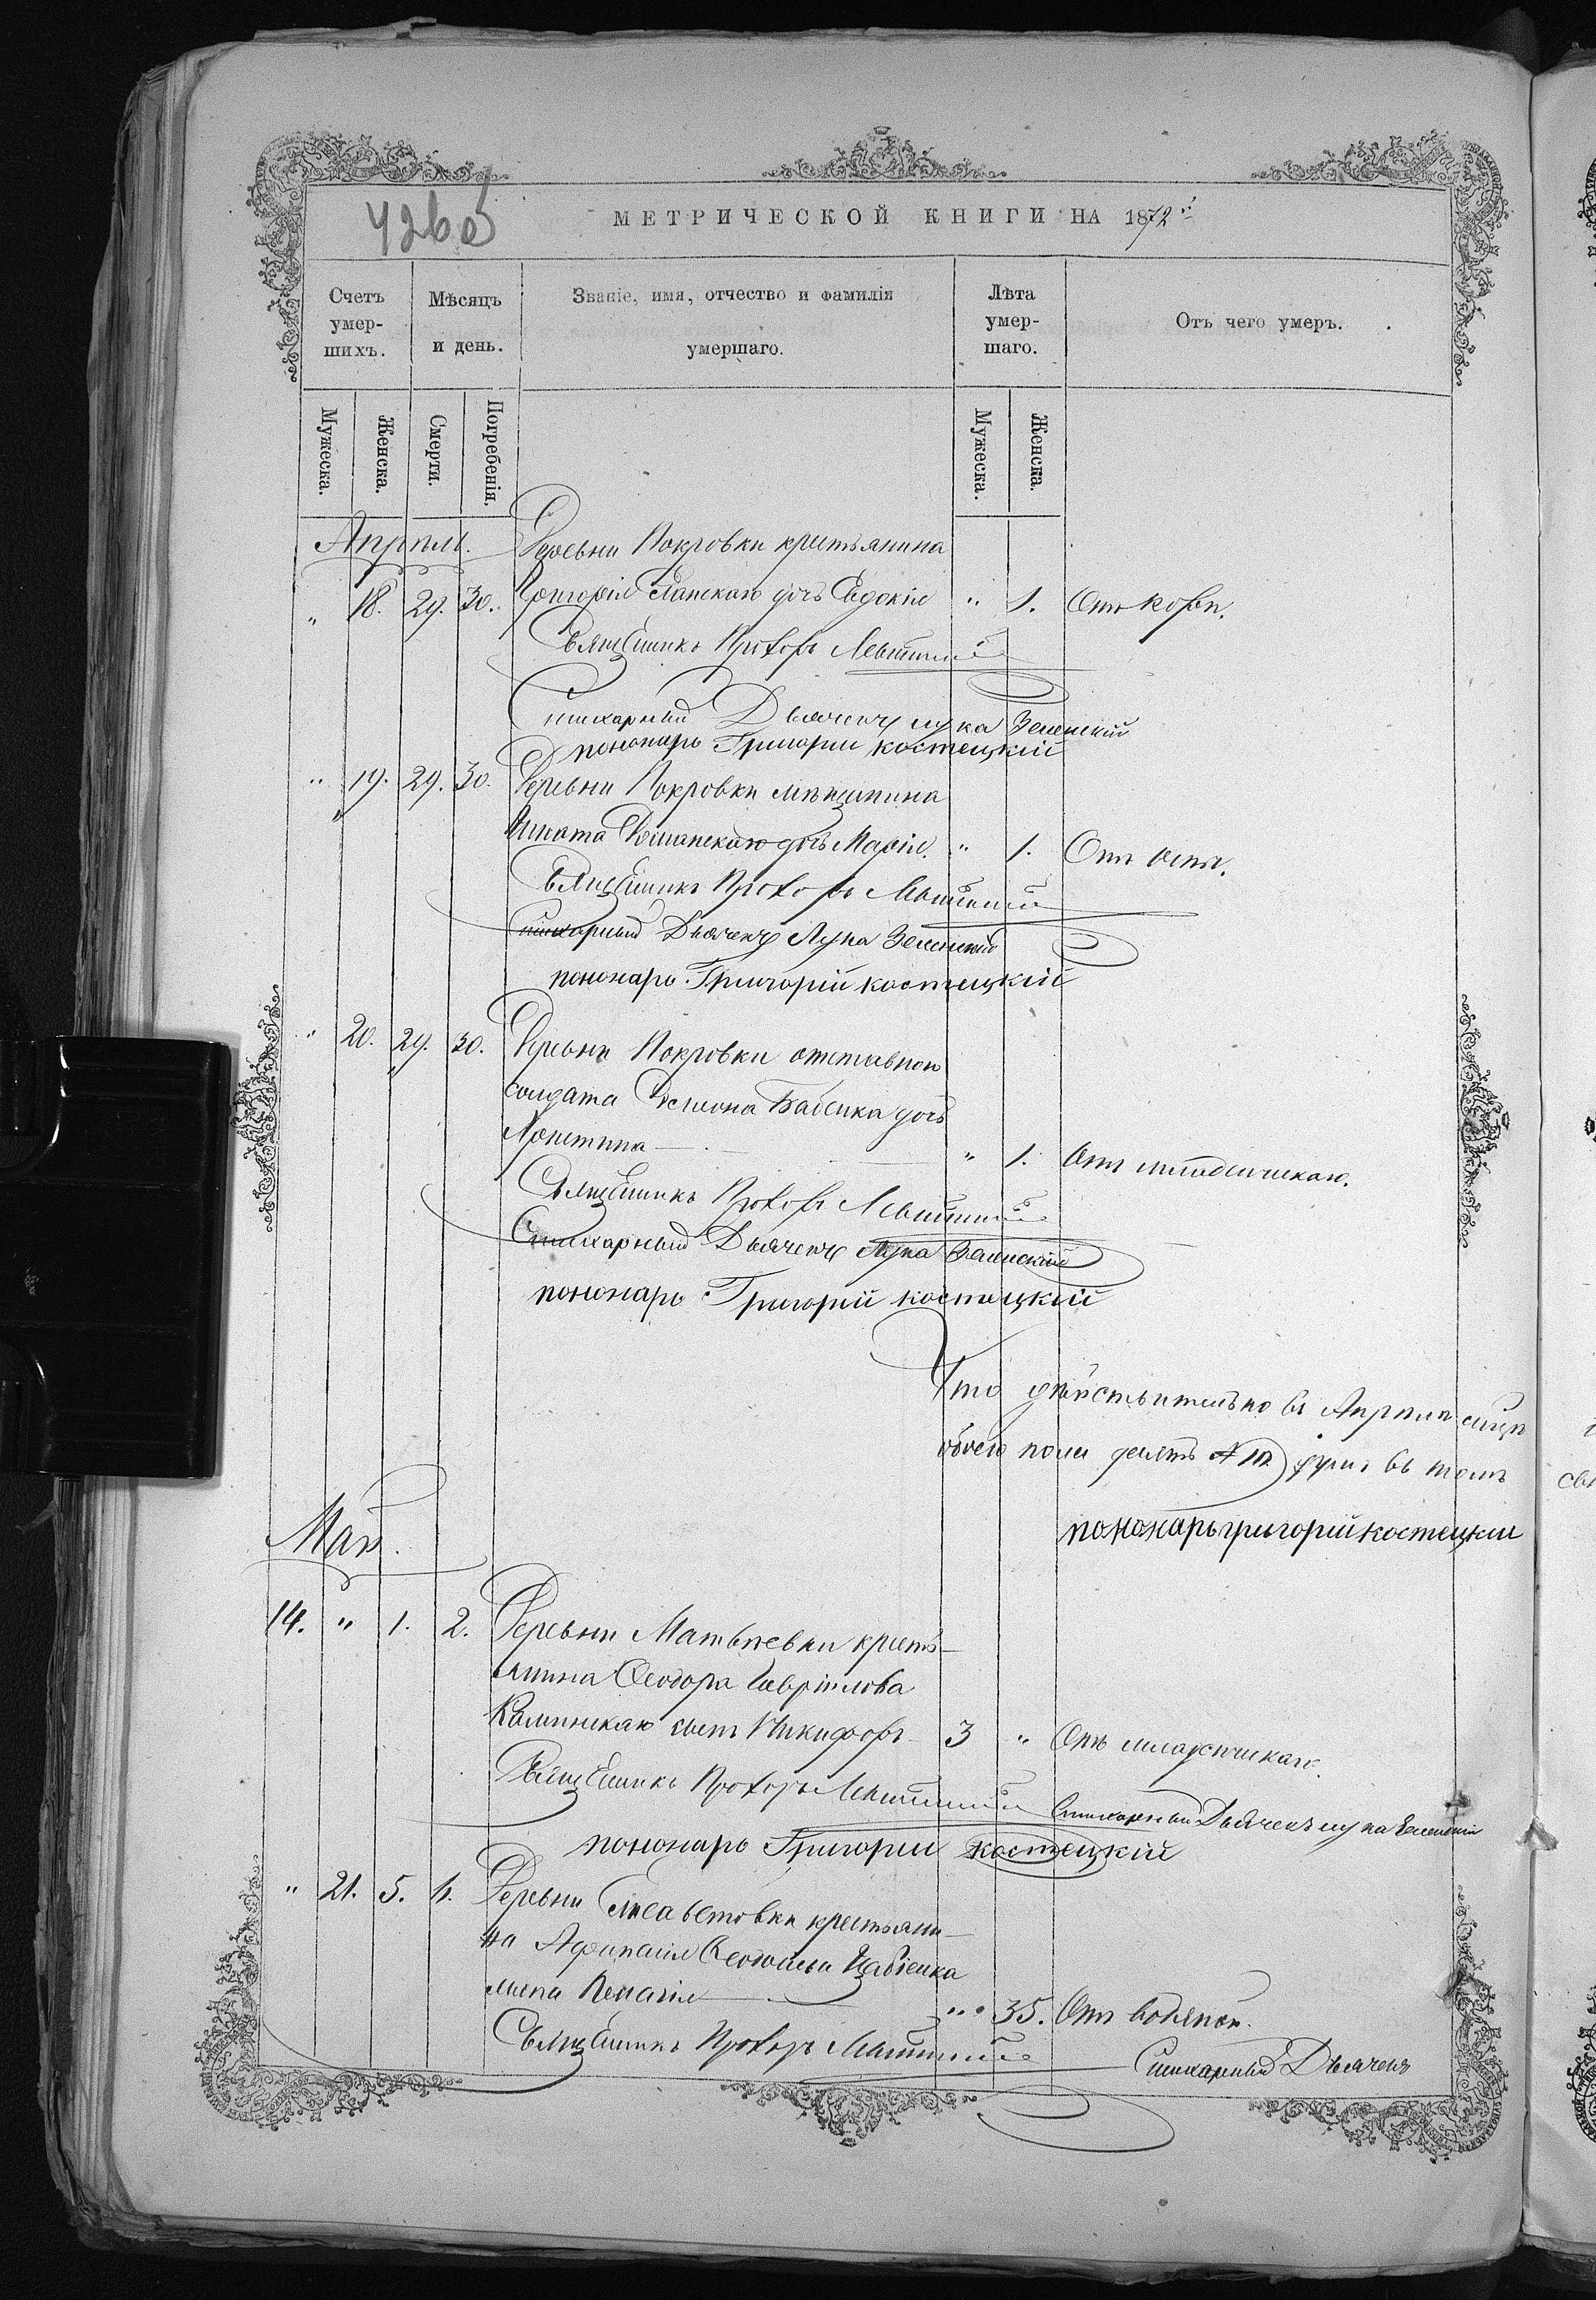 426 об
МЕТРИЧЕСКОЙ КНИГИ НА 1872 г.
Счетъ умер-шихъ.
Мѣсяцъ и день.
Званіе, имя, отчество и фамилія умершаго.
Лѣта умер-шаго.
Отъ чего умеръ.
Мужеска. Женска. Смерти. Погребенія. Мужеска. Женска.
Апрѣль. Деревни Покровки крестьянина
" 18. 29. 30. Григорія дочь Евдокія " 1. Отъ кори.
Священникъ Прохоръ Левитскій
Стихарный Дьячекъ Лука Зеленскій
пономарь Григорий костецкій
" 19. 29. 30. Деревни Покровки мѣщанина
Игната дочь Марія. " 1. Отъ оспы.
Священникъ Прохоръ Левитскій
Стихарный Дьячекъ Лука Зеленскій
пономарь Григорій костецкій
" 20. 29. 30. Деревни Покровки отставного
солдата Бабенка дочь
Христина " 1. Отъ младенческаго.
Священникъ Прохоръ Левитскій
Стихарный Дьячекъ Лука Зеленскій
пономарь Григорий костецкій
Что дѣйствительно въ Апрѣлѣ
обоего пола въ томъ
пономарь григорий костецкий
Май.
14. " 1. 2. Деревни Матвѣевки кресть-
янина Ѳеодора Гаврілова
Калинскаго сынъ Никифоръ 3 " Отъ младенческаго.
Священникъ Прохоръ Левитскій Стихарный Дьячекъ Лука Зеленскій
пономарь Григорий костецкій
" 21. 5. 6. Деревни Елисаветовки крестьяни-
на Афанасія
жена Пелагія " 35. Отъ водяной.
Священникъ Прохоръ Левитскій
Стихарный Дьячекъ